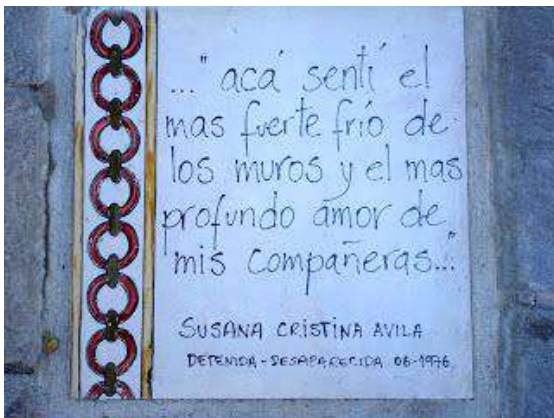 ..."acá sentí el
mas fuerte frío de
los muros y el mas
profundo amor de
mis compañeras..."
SUSANA CRISTINA AVILA
DETENIDA-DESAPARECIDA 06-1976